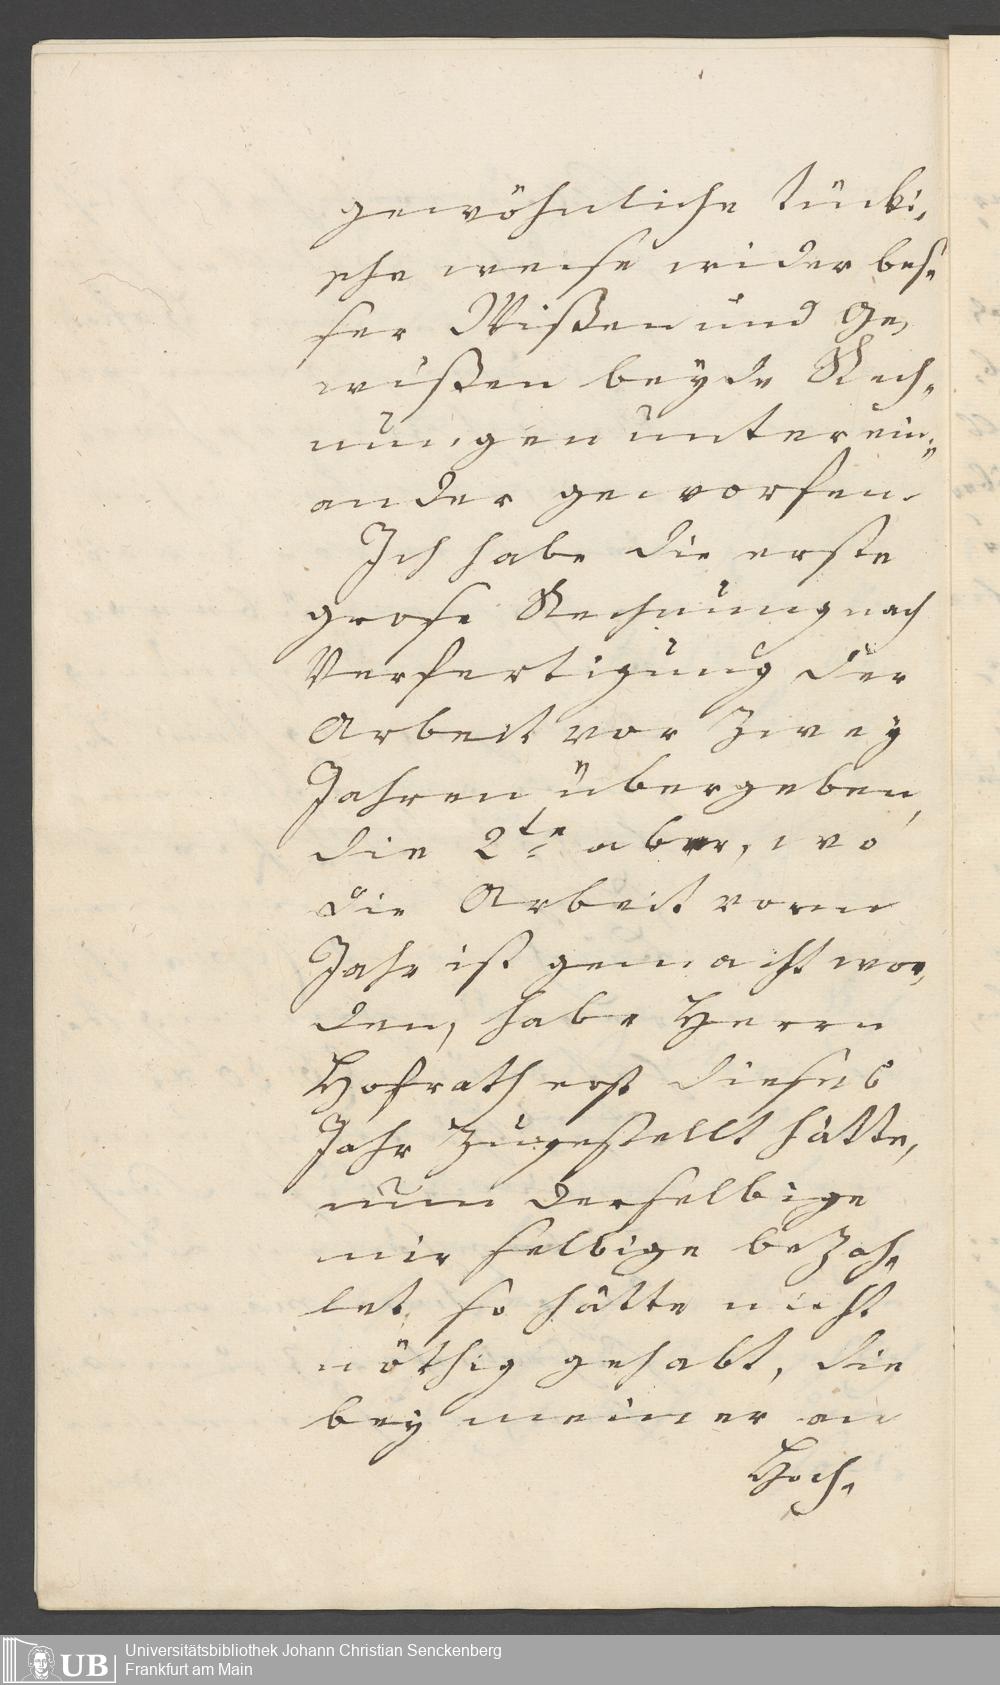 gewöhnliche tücki,
sche weise wider bes,
ser Wißen und Ge,
wißen beyde Rech,
nungen unter ein,
ander geworfen.
Ich habe die erste
grose Rechnung nach
Verfertigung der
Arbeit vor Zwey
Jahren übergeben,
die 2te aber, wo
die Arbeit vorm
Jahr ist gemacht wor,
den, habe Herrn
Hofrath erst dieses
Jahr zugestellt hätte,
nun derselbige
mir selbige beZah,
let, so hätte nicht
nöthig gehabt, die
bey meiner an
Hoch,
UB
Universitätsbibliothek Johann Christian Senckenberg
Frankfurt am Main